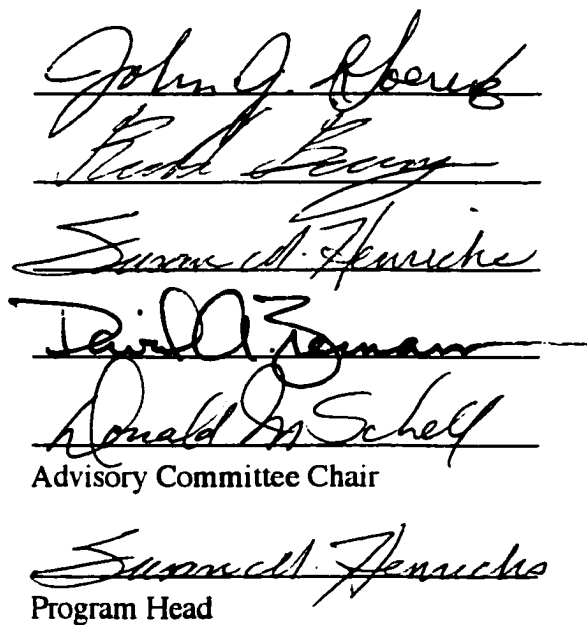 John J.
Susan M. Henrichs
David A.
Donald M Schell
Advisory Committee Chair
Susan M. Henrichs
Program Head